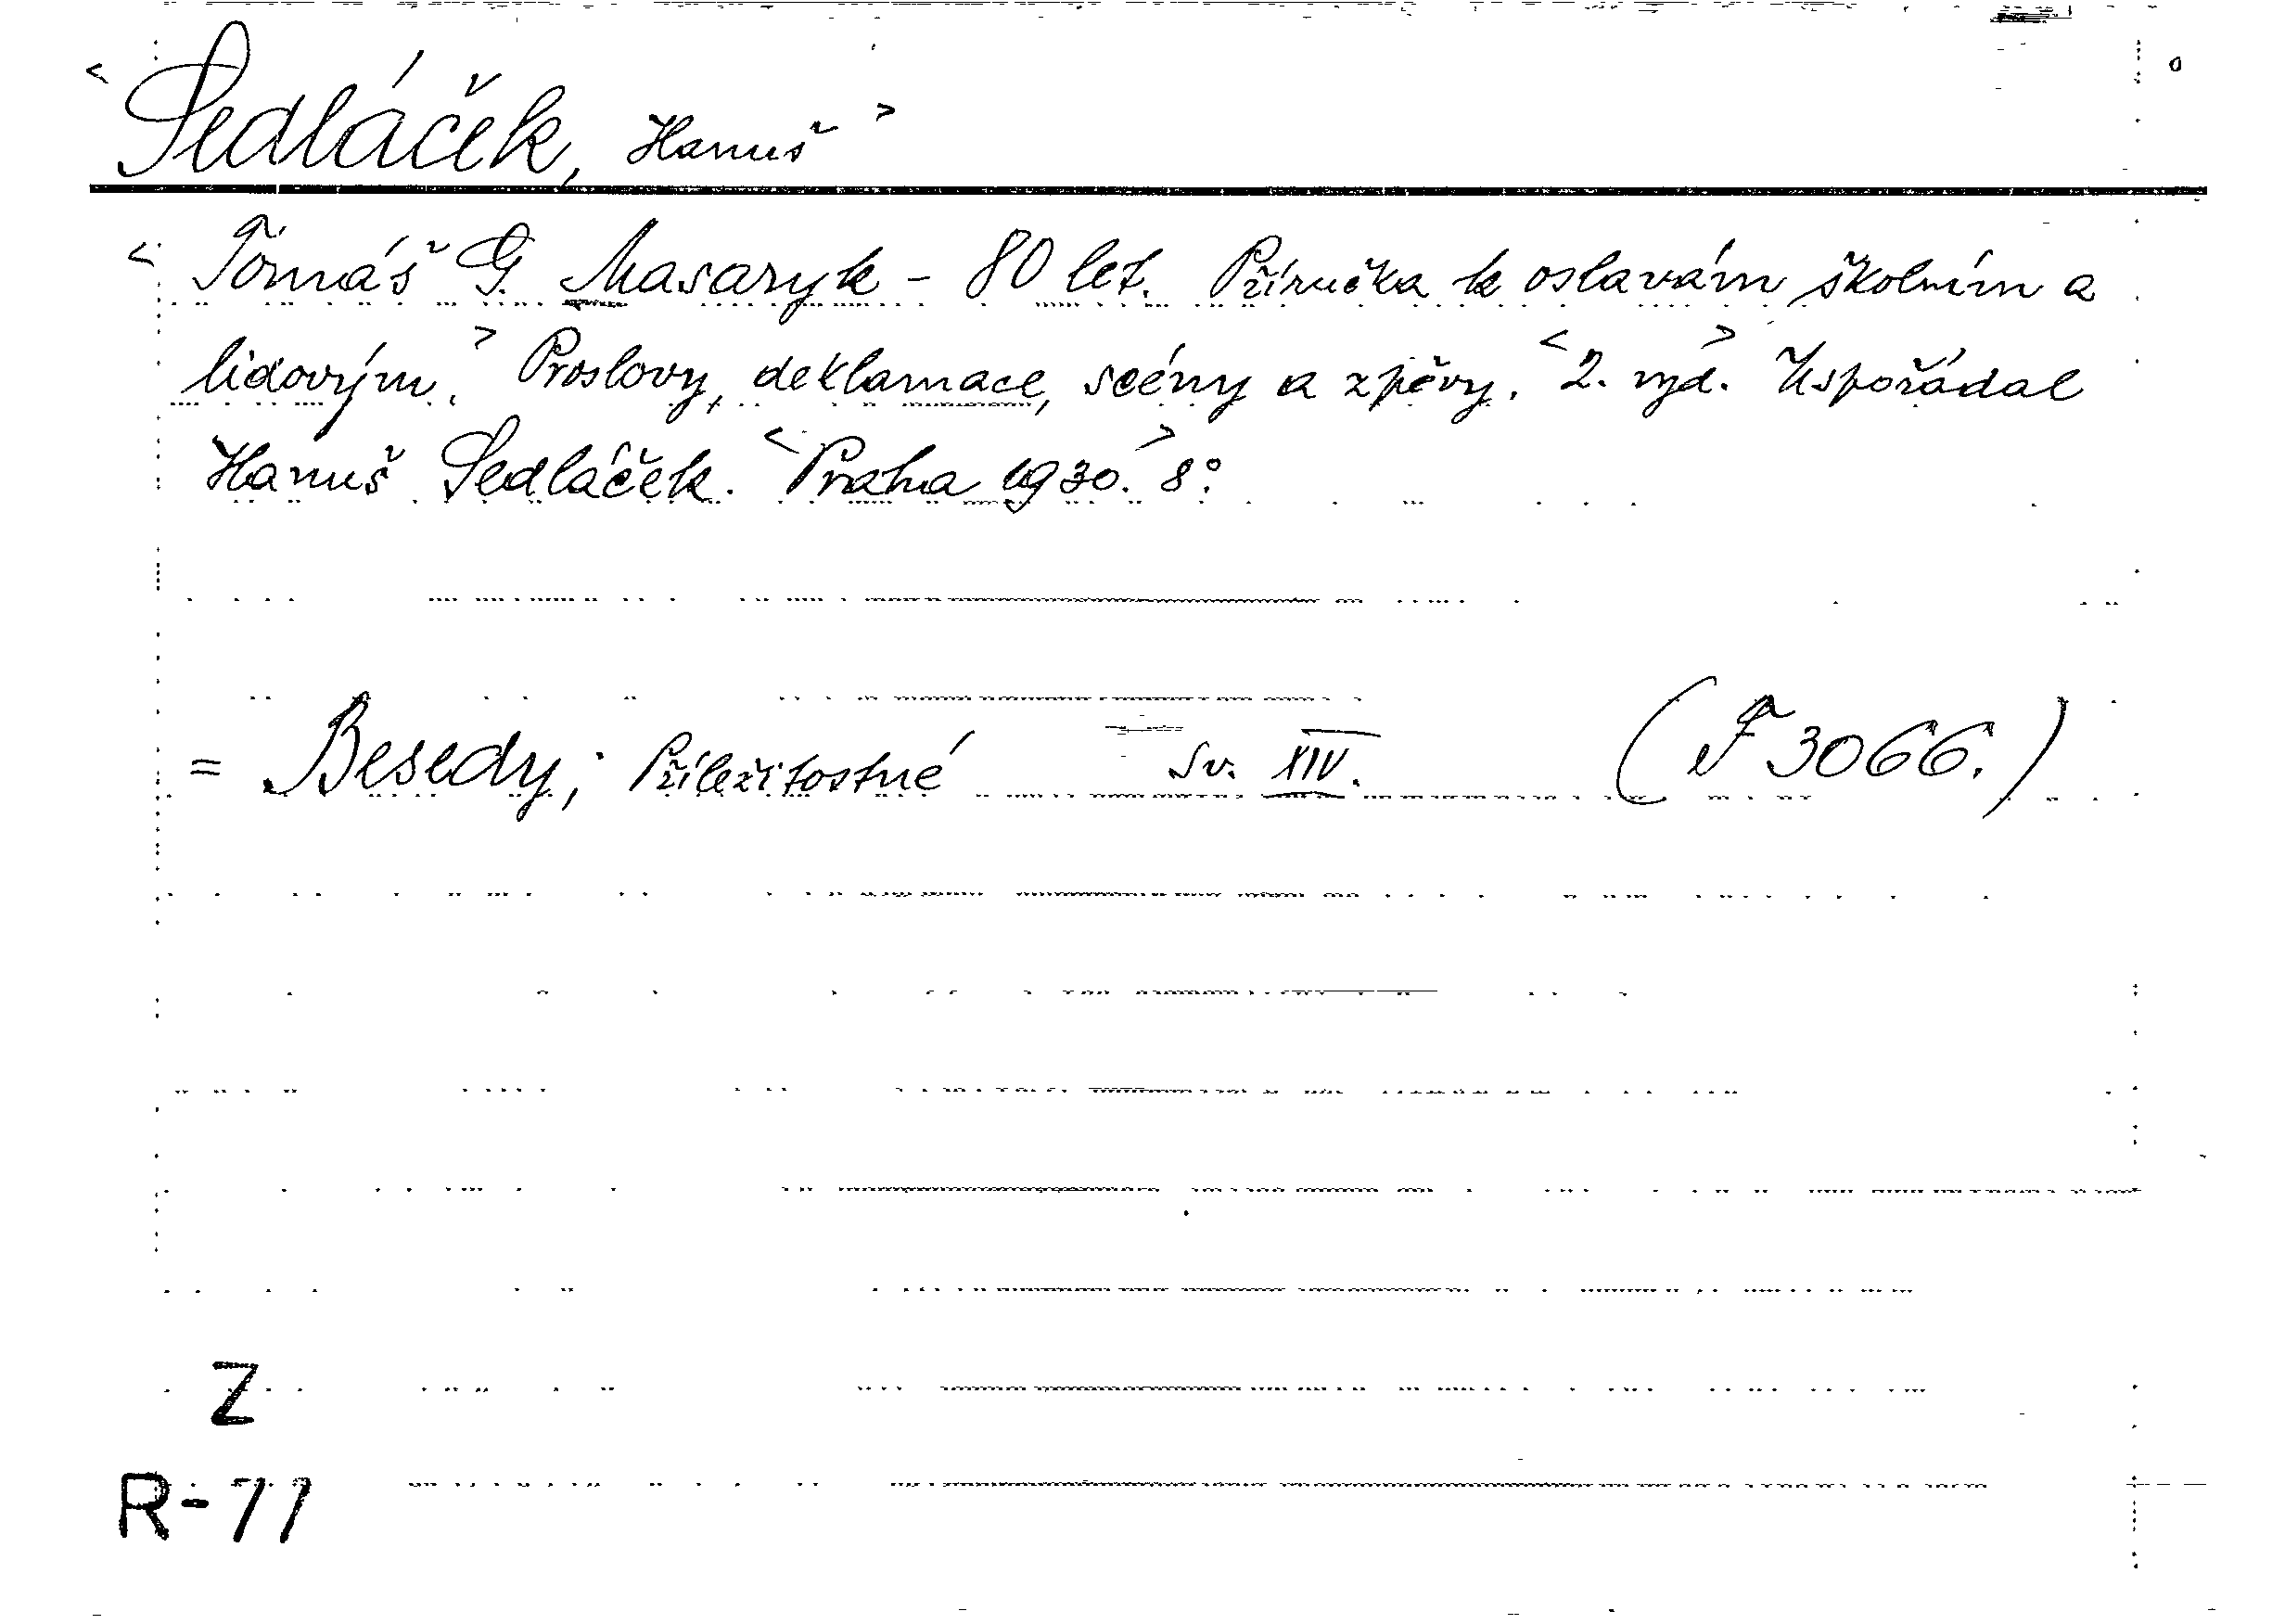 < Sedláček, Hanuš >
< Tomáš G. Masaryk - 80 let. Příručka k oslavám školním a
lidovým. > Proslovy, deklamace, scény a zpěvy. < 2. vyd. > Uspořádal
Hanuš Sedláček. < Praha 1930. > 8°.
= Besedy, Příležitostné Sv. XIV. (F 3066.)
Z
R-77